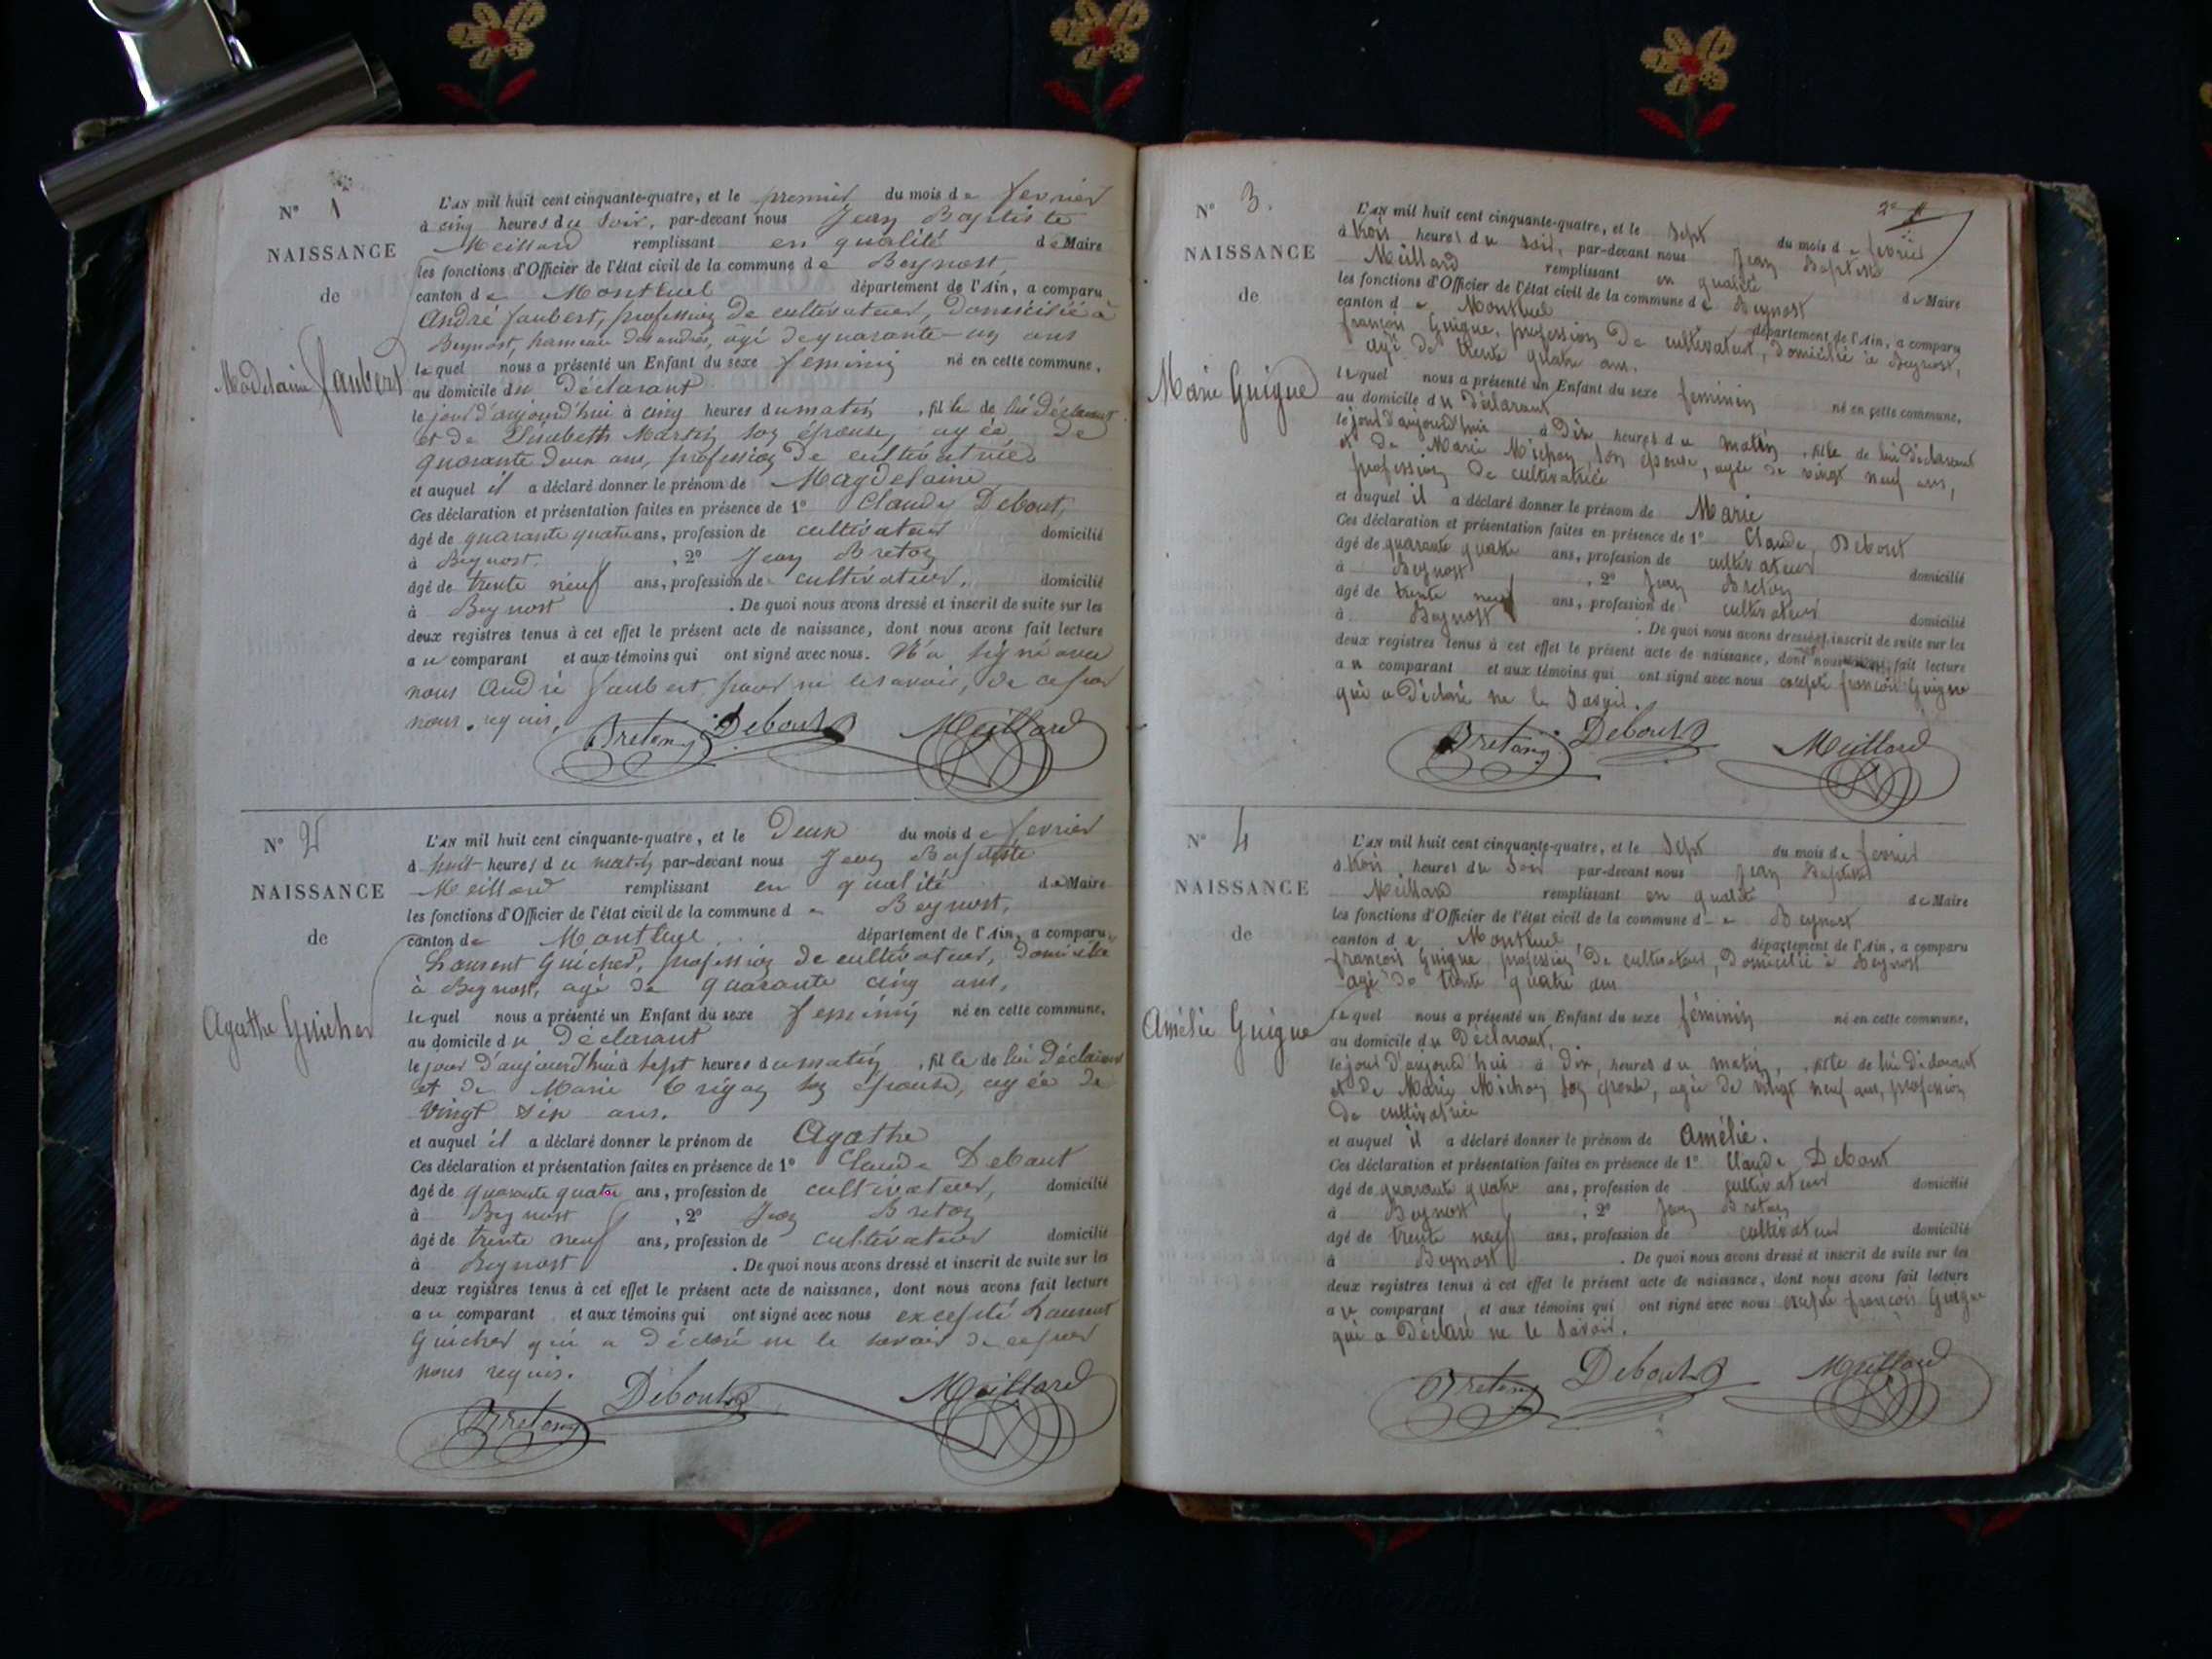 N° 1
NAISSANCE
de
Madelaine Jaubert
L'AN mil huit cent cinquante-quatre, et le premier du mois de fevrier
à cinq heures du soir, par-devant nous Jean Baptiste
Meillard remplissant en qualité de Maire
les fonctions d'Officier de l'état civil de la commune de Beynost,
canton de Montluel département de l'Ain, a comparu
André Jaubert, profession de cultivateur, domicilié à
Beynost, hameau des andrés, âgé de quarante-un ans
lequel nous a présenté un Enfant du sexe feminin né en cette commune,
au domicile du déclarant
le jour d'aujourd'hui à cinq heures du matin, fille de lui déclarant
et de Elisabeth Martin son épouse, agée de
quarante deux ans, profession de cultivatrice
et auquel il a déclaré donner le prénom de Magdelaine
Ces déclaration et présentation faites en présence de 1° Claude Debout,
âgé de quarante quatre ans, profession de cultivateur domicilié
à Beynost, 2° Jean Breton
âgé de trente neuf ans, profession de cultivateur, domicilié
à Beynost. De quoi nous avons dressé et inscrit de suite sur les
deux registres tenus à cet effet le présent acte de naissance, dont nous avons fait lecture
au comparant et aux témoins qui ont signé avec nous. N'a signé avec
nous André Jaubert pour ne le savoir, de ce par
nous requis.
Breton Debout Meillard
N° 2
NAISSANCE
de
Agathe Guicher
L'AN mil huit cent cinquante-quatre, et le Deux du mois de fevrier
à huit heures du matin par-devant nous Jean Baptiste
Meillard remplissant en qualité de Maire
les fonctions d'Officier de l'état civil de la commune de Beynost,
canton de Montluel département de l'Ain, a comparu
Laurent Guicher, profession de cultivateur, domicilié
à Beynost, agé de quarante cinq ans,
lequel nous a présenté un Enfant du sexe feminin né en cette commune,
au domicile du déclarant
le jour d'aujourd'hui à sept heures du matin, fille de lui déclarant
et de Marie son épouse, agée de
vingt six ans.
et auquel il a déclaré donner le prénom de Agathe
Ces déclaration et présentation faites en présence de 1° Claude Debout
âgé de quarante quatre ans, profession de cultivateur, domicilié
à Beynost, 2° Jean Breton
âgé de trente neuf ans, profession de cultivateur domicilié
à Beynost. De quoi nous avons dressé et inscrit de suite sur les
deux registres tenus à cet effet le présent acte de naissance, dont nous avons fait lecture
au comparant et aux témoins qui ont signé avec nous excepté Laurent
Guicher qui a déclaré ne le savoir de ce par
nous requis.
Breton Debout Meillard
N° 3.
NAISSANCE
de
Marie Guigue
L'AN mil huit cent cinquante-quatre, et le sept du mois de fevrier
à trois heures du soir, par-devant nous Jean Baptiste
Meillard remplissant en qualité de Maire
les fonctions d'Officier de l'état civil de la commune de Beynost
canton de Montluel département de l'Ain, a comparu
françois Guigue, profession de cultivateur, domicilié à Beynost,
agé de trente quatre ans.
lequel nous a présenté un Enfant du sexe feminin né en cette commune,
au domicile du déclarant
le jour d'aujourd'hui à dix heures du matin, fille de lui déclarant
et de Marie Michon, son épouse, agée de vingt neuf ans,
profession de cultivatrice
et auquel il a déclaré donner le prénom de Marie
Ces déclaration et présentation faites en présence de 1° Claude Debout
âgé de quarante quatre ans, profession de cultivateur domicilié
à Beynost, 2° Jean Breton
âgé de trente neuf ans, profession de cultivateur domicilié
à Beynost. De quoi nous avons dressé et inscrit de suite sur les
deux registres tenus à cet effet le présent acte de naissance, dont nous fait lecture
au comparant et aux témoins qui ont signé avec nous excepté françois Guigue
qui a déclaré ne le savoir.
Breton Debout Meillard
N° 4
NAISSANCE
de
Amélie Guigue
L'AN mil huit cent cinquante-quatre, et le sept du mois de fevrier
à trois heures du soir par-devant nous Jean Baptiste
Meillard remplissant en qualité de Maire
les fonctions d'Officier de l'état civil de la commune de Beynost
canton de Montluel département de l'Ain, a comparu
françois Guigue profession de cultivateur, domicilié à Beynost
agé de trente quatre ans
lequel nous a présenté un Enfant du sexe féminin né en cette commune,
au domicile du déclarant,
le jour d'aujourd'hui à dix heures du matin, fille de lui déclarant
et de Marie Michon son épouse, agée de vingt neuf ans, profession
de cultivatrice
et auquel il a déclaré donner le prénom de Amélie.
Ces déclaration et présentation faites en présence de 1° Claude Debout
âgé de quarante quatre ans, profession de cultivateur domicilié
à Beynost, 2° Jean Breton
âgé de trente neuf ans, profession de cultivateur domicilié
à Beynost. De quoi nous avons dressé et inscrit de suite sur les
deux registres tenus à cet effet le présent acte de naissance, dont nous avons fait lecture
au comparant et aux témoins qui ont signé avec nous excepté françois Guigue
qui a déclaré ne le savoir.
Breton Debout Meillard